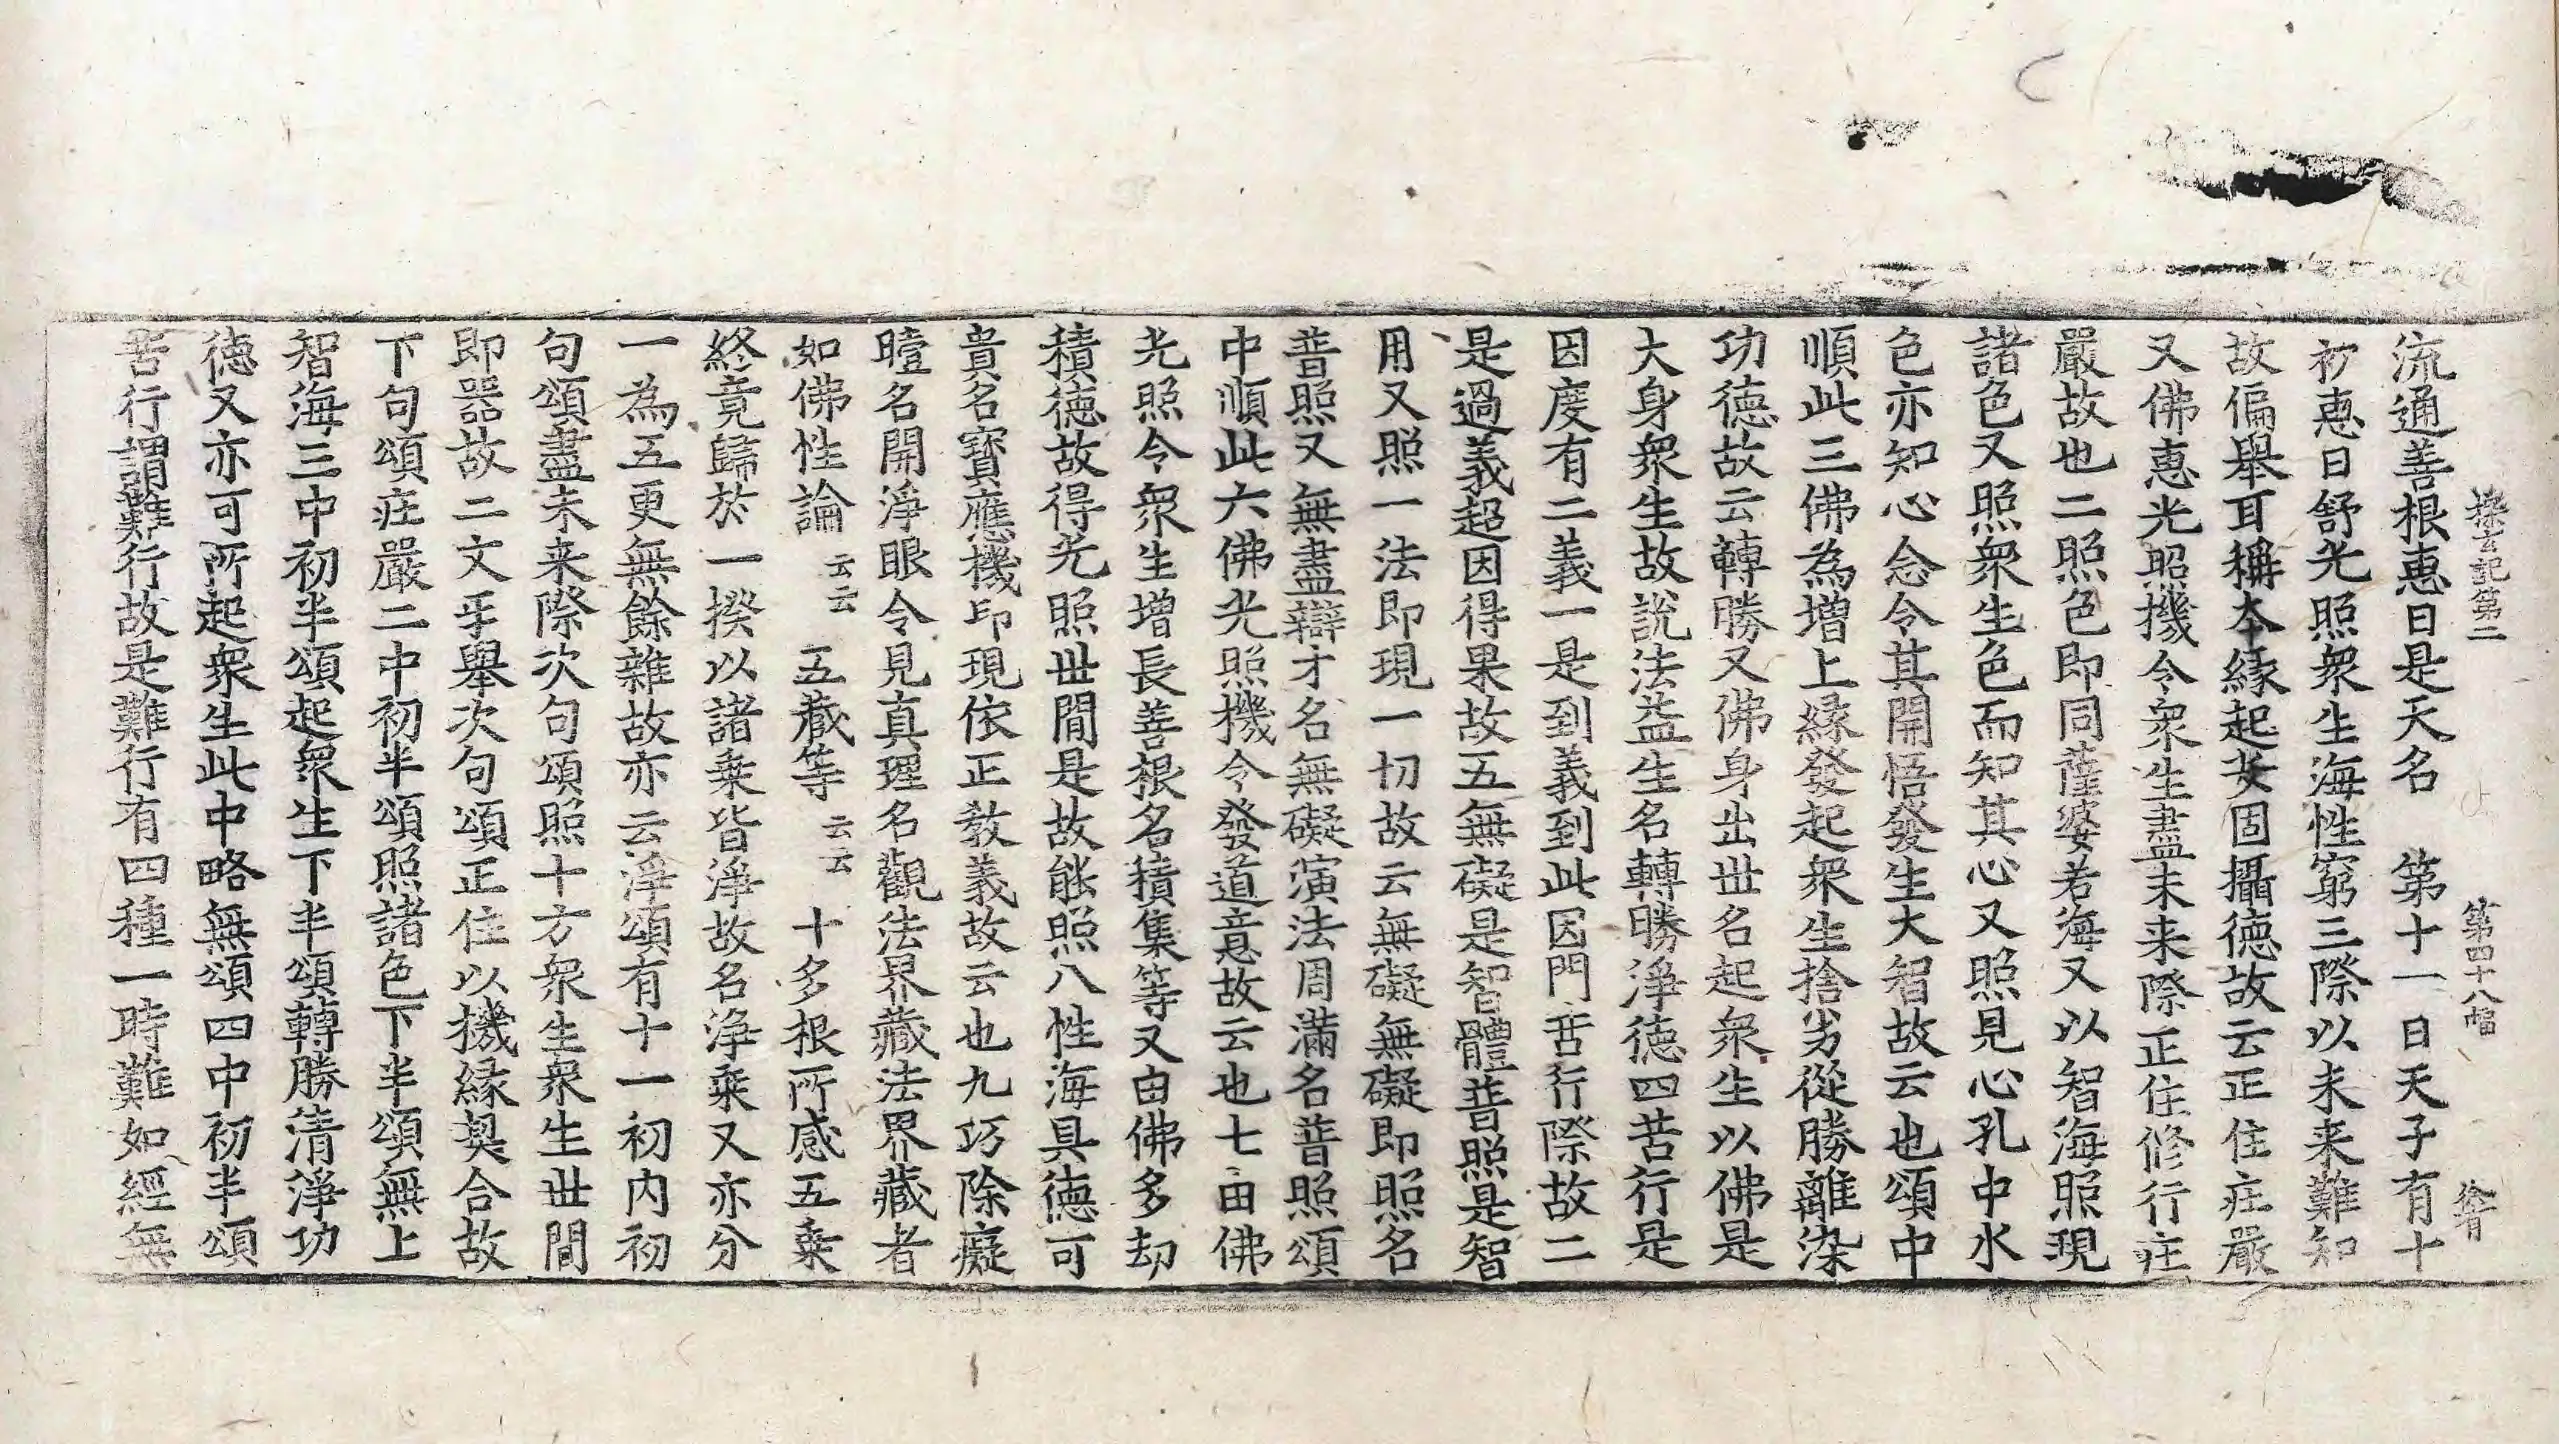 探玄記第二 第四十八幅
流通善根惠日是天名 第十一日天子有十
初惠日舒光照衆生海性窮三際以未来難知
故偏舉耳稱本緣起劣固攝德故云正住庄嚴
又佛惠光照機令衆生盡未来際正住修行庄
嚴故也二照色即同薩婆若海又以智海照現
諸色又照衆生色而知其心又照見心孔中水
色亦知心念令其開悟發生大智故云也頌中
順此三佛為增上緣發起衆生捨劣從勝離染
功德故云轉勝又佛身出世名起衆生以佛是
大身衆生故說法益生名轉勝淨德四苦行是
因度有二義一是到義到此因門苦行際故二
是過義超因得果故五無礙是智體普照是智
用又照一法即現一切故云無礙無礙即照名
普照又無盡辯才名無礙演法周滿名普照頌
中順此六佛光照機令發道意故云也七由佛
光照令衆生增長善根名積集等又由佛多劫
積德故得光照世間是故能照八性海具德可
貴名寶應機印現依正教義故云也九巧除癡
曀名開淨眼令見真理名觀法界藏法界藏者
如佛性論云云 五藏等云云 十多根所感五乗
終竟歸於一揆以諸乗皆淨故名淨乗又亦分
一為五更無餘雜故亦云淨頌有十一初内初
句頌盡未来際次句頌照十方衆生衆生世間
即器故二文乎舉次句頌正住以機緣契合故
下句頌庄嚴二中初半頌照諸色下半頌無上
智海三中初半頌起衆生下半頌轉勝清淨功
德又亦可所起衆生此中略無頌四中初半頌
苦行謂難行故是難行有四種一時難如經無